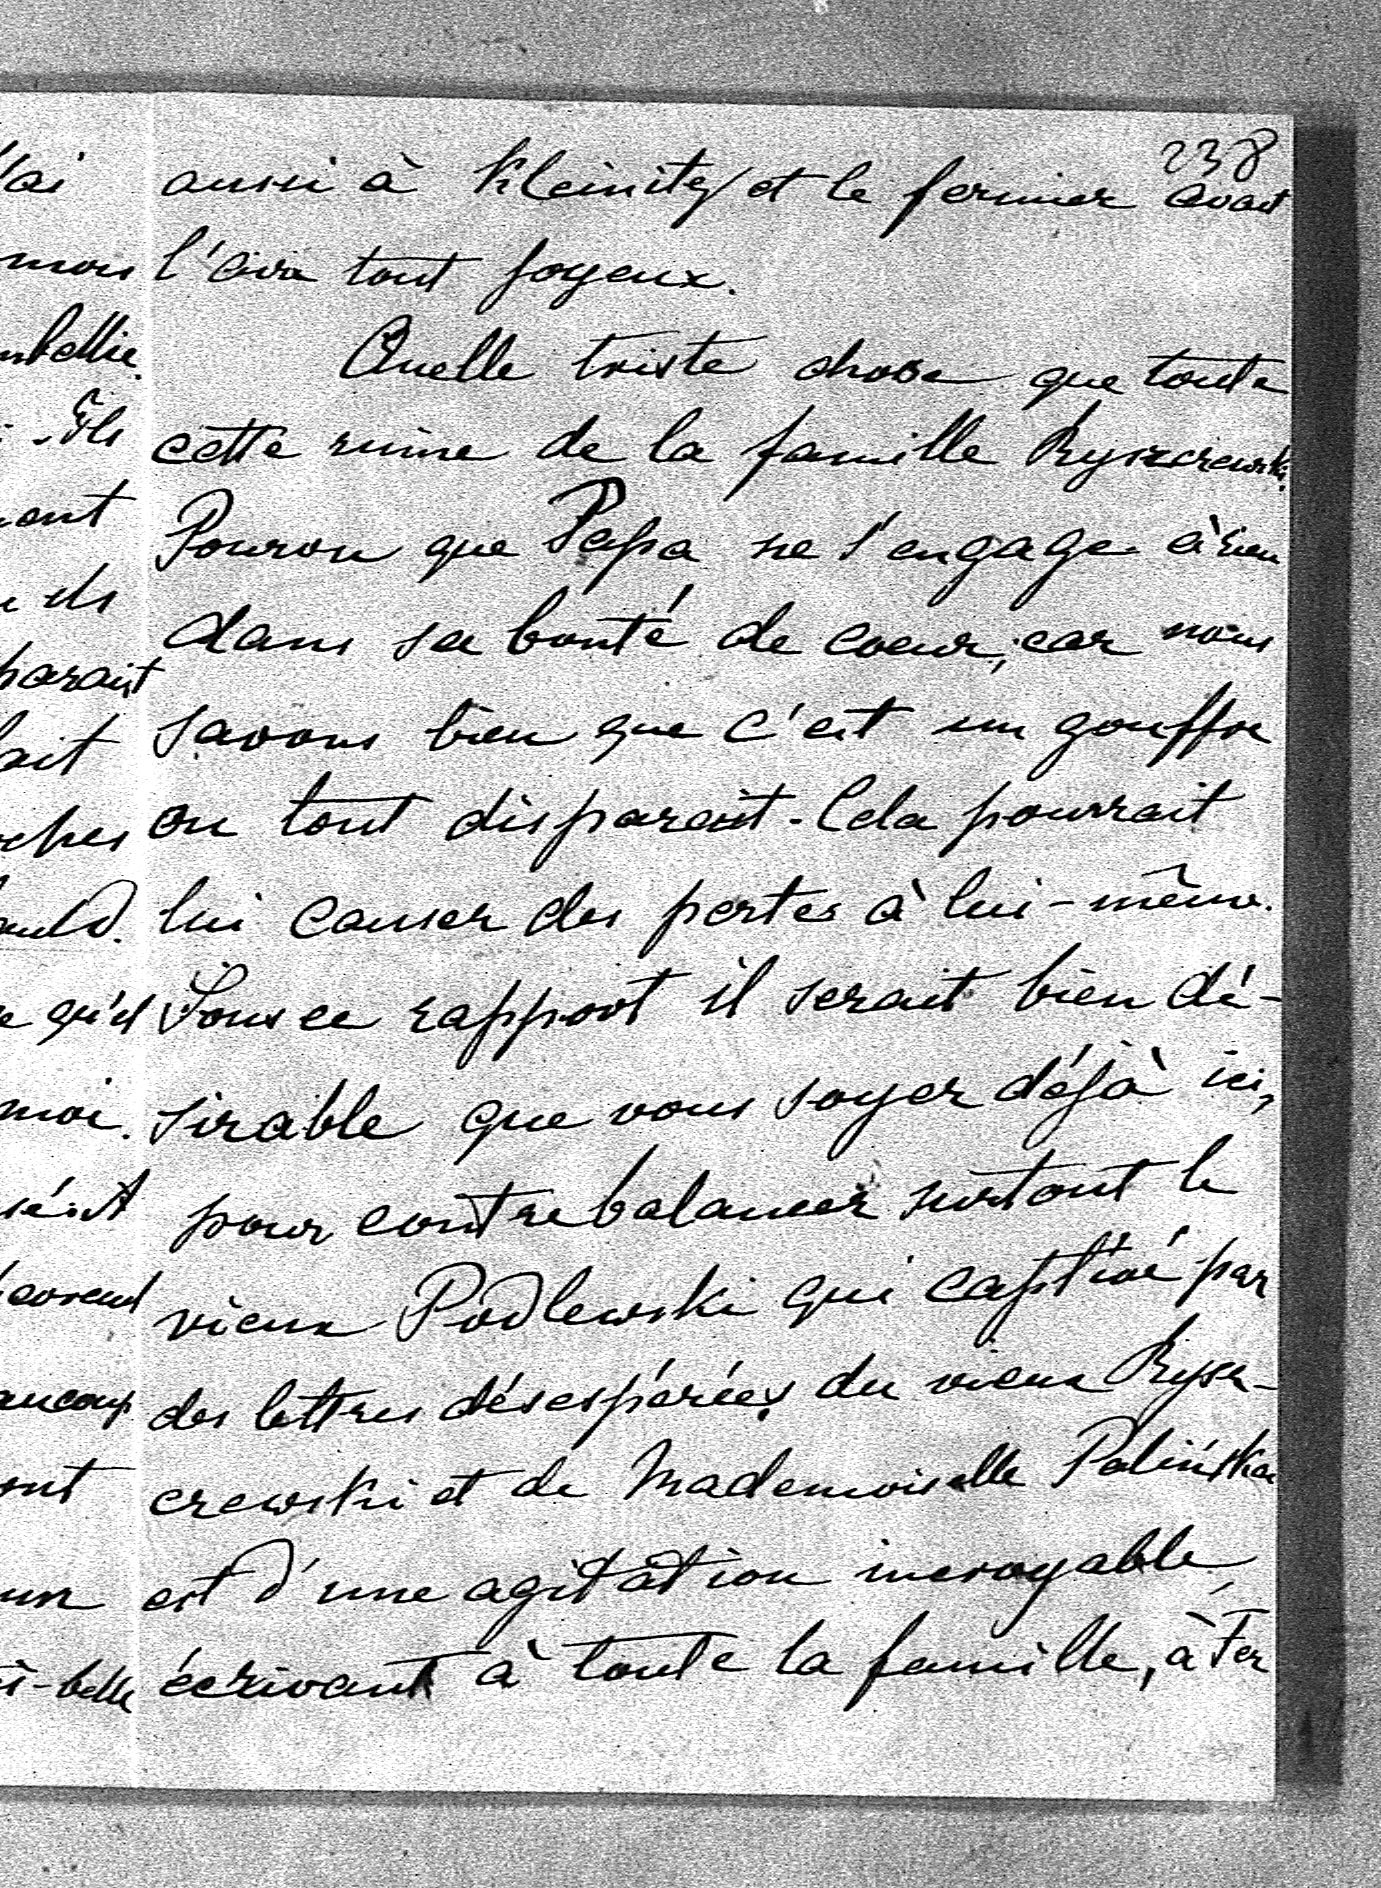 238
aussi à Kleinitz et le fermier avait
l'air tout joyeux.
Quelle triste chose que toute
cette ruine de la famille Ryszczewski.
Pourvu que Papa ne s'engage à rien
dans sa bonté de coeur, car nous
savons bien que c'est un gouffre
ou tout disparait. Cela pourrait
lui causer des pertes à lui-même.
Sous ce rapport il serait bien dé-
sirable que vous soyez déjà ici,
pour contrebalancer surtout le
vieux Podlewski qui captivé par
des lettres désespérées du vieux Rysz-
czewski et de Mademoiselle Palińska
est d'une agitation incroyable,
écrivant à toute la famille, à Fer
mon
Ils
ont
ils
parait
qu'il
moi.
un